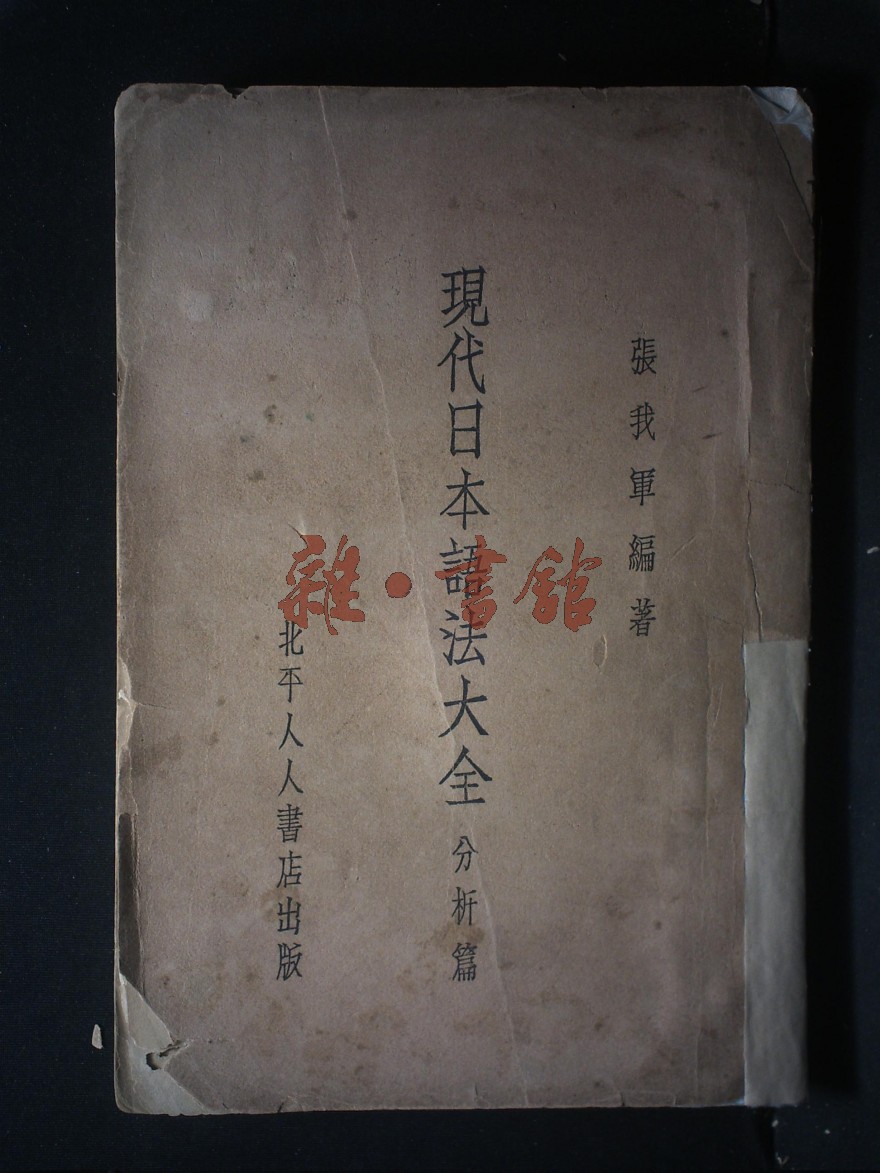 張我軍編著
現代日本語法大全 分析篇
北平人人書店出版
雜·書館